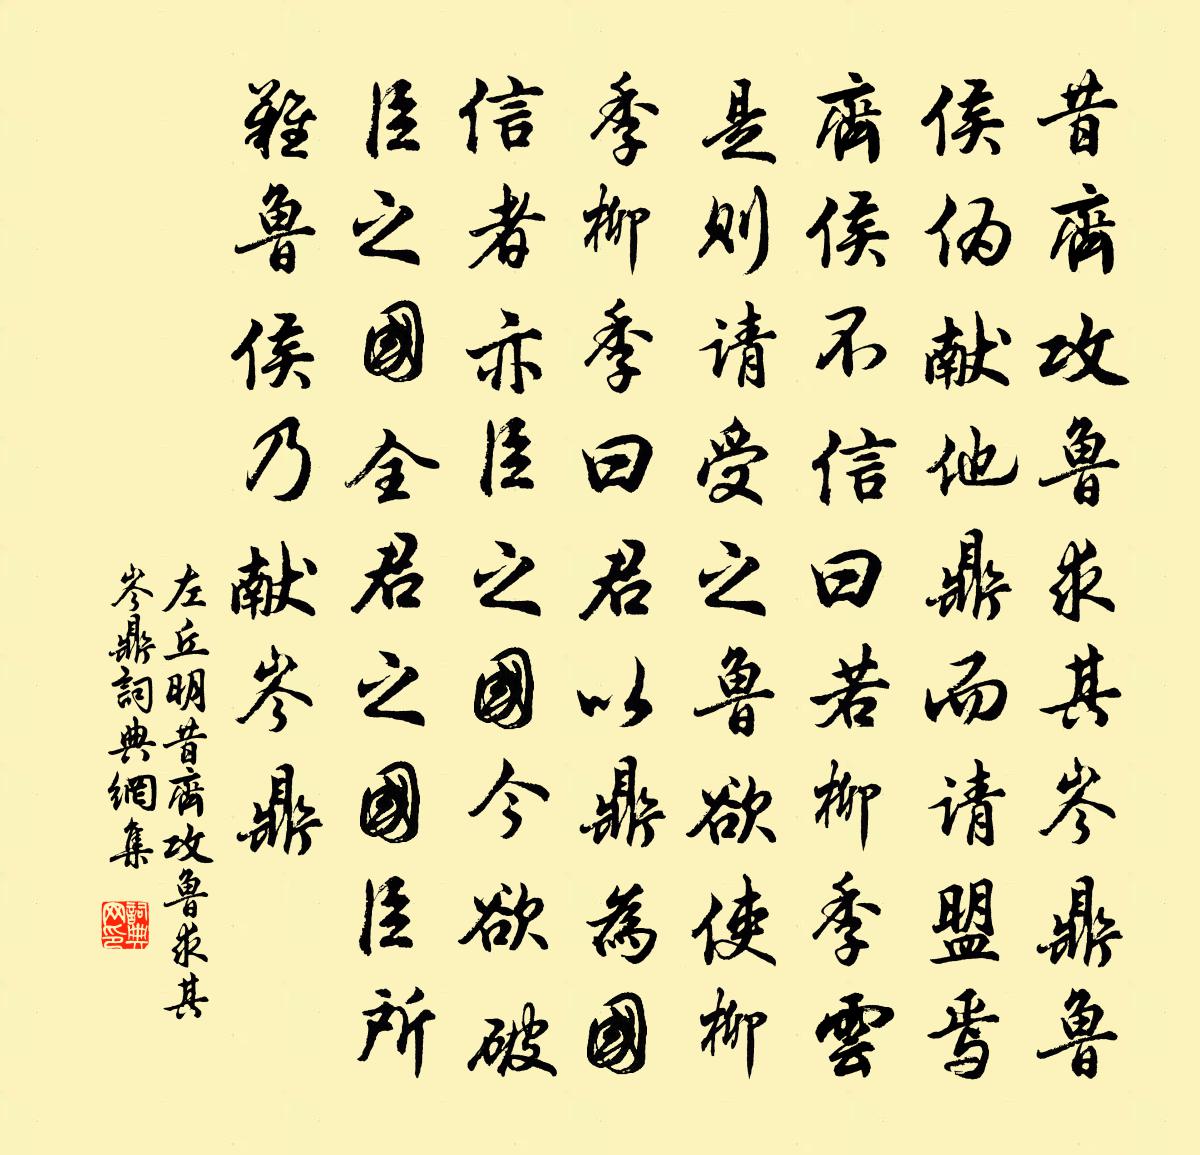 昔齊攻魯求其岑鼎魯
侯伪献他鼎而请盟焉
齊侯不信曰若柳季雲
是则请受之魯欲使柳
季柳季曰君以鼎為國
信者亦臣之國今欲破
臣之國全君之國臣所
難魯侯乃献岑鼎
左丘明昔齊攻魯求其
岑鼎詞典網集
詞典
网印